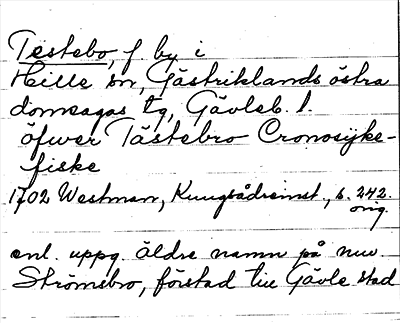 Testebo, f by i
Hille sn, Gästriklands östra
domsagas tg, Gävleb. l.
öfwer Tästebro Cronosijke-
fiske
1702 Westman, Kungsådreinst., s. 242.
orig.
enl. uppg. äldre namn på nuv.
Strömsbro, förstad till Gävle stad